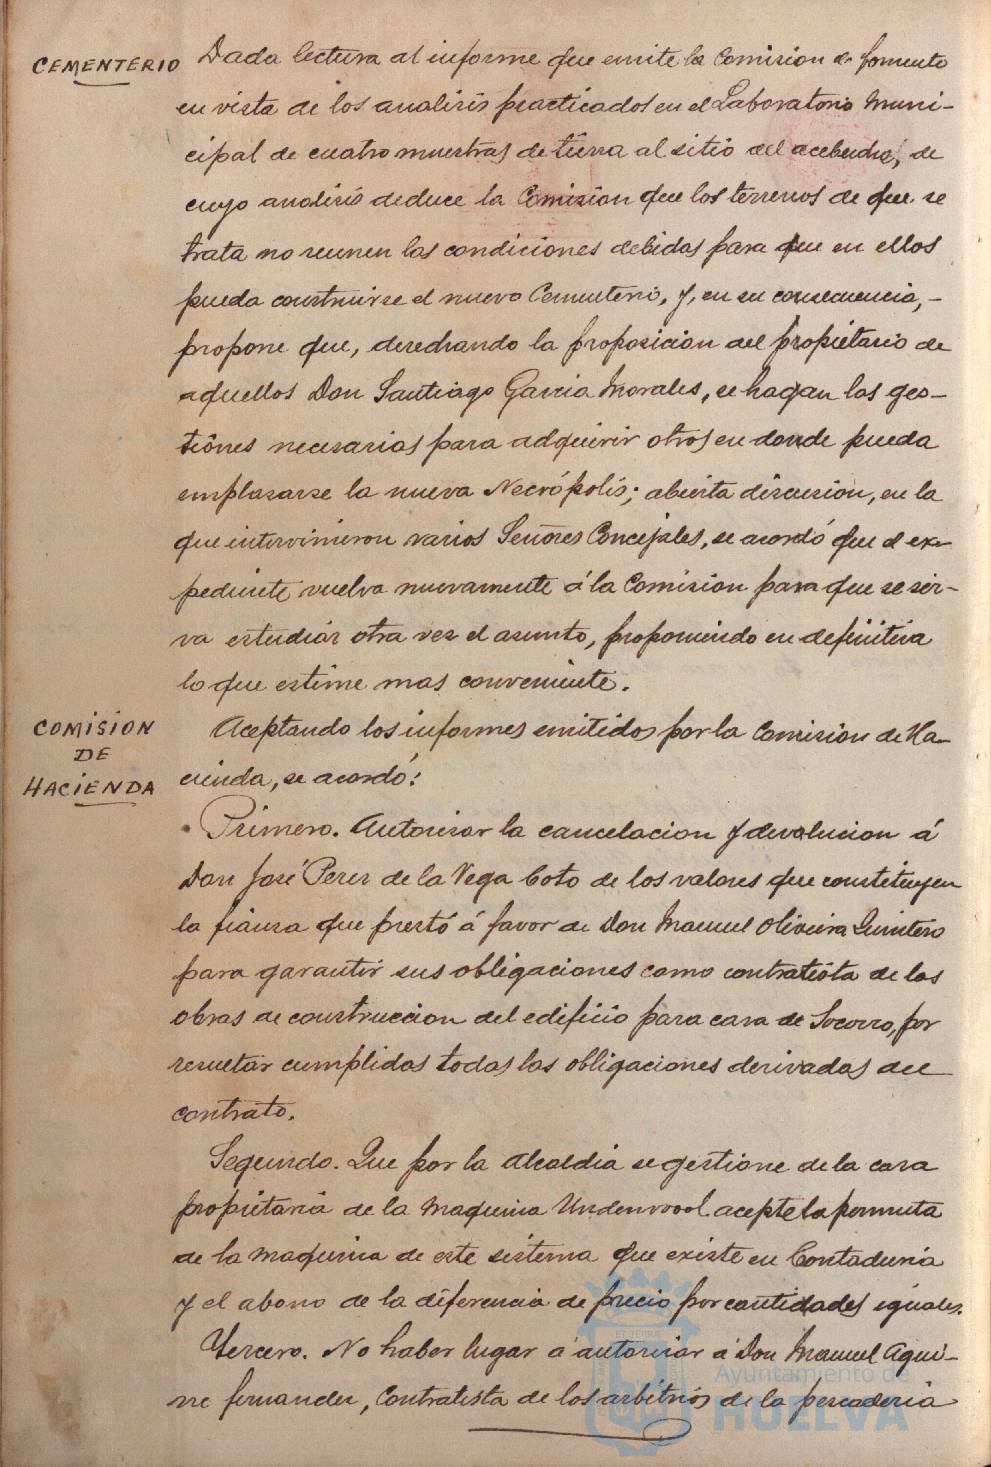 CEMENTERIO
Dada lectura al informe que emite la Comision de fomento
en vista de los analisis practicados en el Laboratorio Muni-
cipal de cuatro muestras de tierra al sitio del acebuche, de
cuyo analisis deduce la Comision que los terrenos de que se
trata no reunen las condiciones debidas para que en ellos
pueda construirse el nuevo Cementerio, y, en su consecuencia, -
propone que, desechando la proposicion del propietario de
aquellos Don Santiago Garcia Morales, se hagan las ges-
tiones necesarias para adquirir otros en donde pueda
emplasarse la nueva Necrópolis; abierta discusion, en la
que intervinieron varios Señores Concejales, se acordó que el ex-
pediente vuelva nuevamente á la Comision para que se sir-
va estudiar otra vez el asunto, proponiendo en definitiva
lo que estime mas conveniente.
COMISION
DE
HACIENDA
Aceptando los informes emitidos por la Comision de Ha-
cienda, se acordó:
Primero. Autorizar la cancelacion y devolucion á
Don José Perez de la Vega Coto de los valores que constituyen
la fianza que prestó á favor de Don Manuel Oliveira Quintero
para garantir sus obligaciones como contratista de las
obras de construccion del edificio para casa de Socorro, por
resultar cumplidas todas las obligaciones derivadas del
contrato.
Segundo. Que por la Alcaldia se gestione de la casa
propietaria de la maquina Undervood acepte la permuta
de la maquina de este sistema que existe en Contaduria
y el abono de la diferencia de precio por cantidades iguales.
Tercero. No haber lugar á autorizar á Don Manuel Agui-
rre fernandez, Contratista de los arbitrios de la pescaderia
EL TERRÆ
Ayuntamiento de
HUELVA